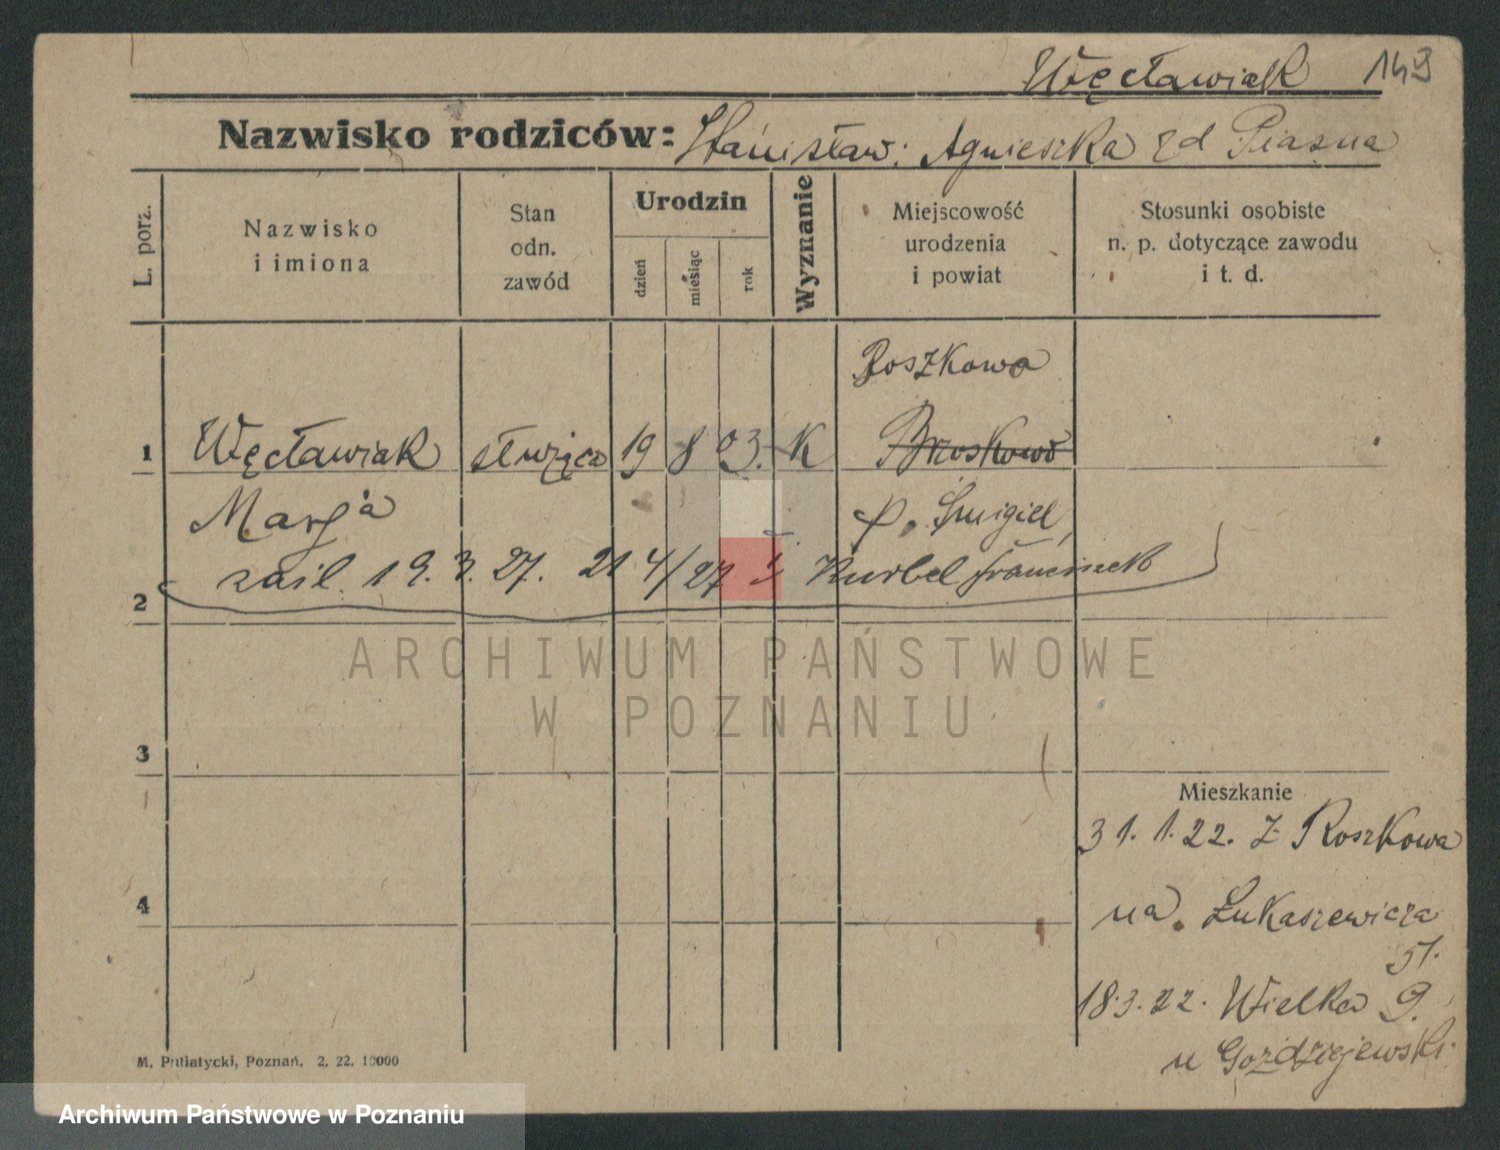 Węcławiak 149
Nazwisko rodziców: Stanisław; Agnieszka zd Piasna
L. porz.
Nazwisko
i imiona
Stan
odn.
zawód
Urodzin
dzień
miesiąc
rok
Wyznanie
Miejscowość
urodzenia
i powiat
Stosunki osobiste
n. p. dotyczące zawodu
i t. d.
Roszkowo
1 Węcławiak służąca 19 8 03. K Broskowo
Marja p. Śmigiel
zaśl. 19. 3. 27. 21 4/27 Kurbel Franciszek
2
ARCHIWUM PAŃSTWOWE
W POZNANIU
3
Mieszkanie
31. 1. 22. Z Roszkowa
4
na Łukaszewicza
51.
18.3.22. Wielka 9.
u Gozdziejewski.
M. Putiatycki, Poznań. 2. 22. 10000
Archiwum Państwowe w Poznaniu